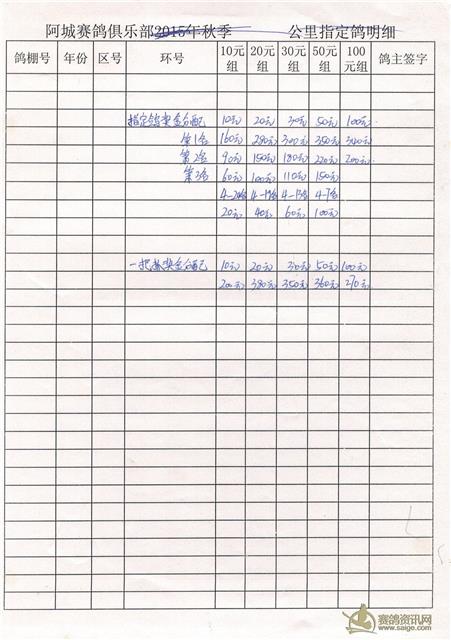 阿城赛鸽俱乐部2015年秋季 公里指定鸽明细
鸽棚号 年份 区号 环号 10元组 20元组 30元组 50元组 100元组 鸽主签字
指定鸽奖金分配 10元 20元 30元 50元 100元
第1名 160元 280元 300元 350元 300元
第2名 90元 150元 180元 220元 200元
第3名 60元 100元 110元 150元
4-20名 4-19名 4-13名 4-7名
20元 40元 60元 100元
一把抓奖金分配 10元 20元 30元 50元 100元
200元 380元 350元 360元 270元
赛鸽资讯网
www.saige.com